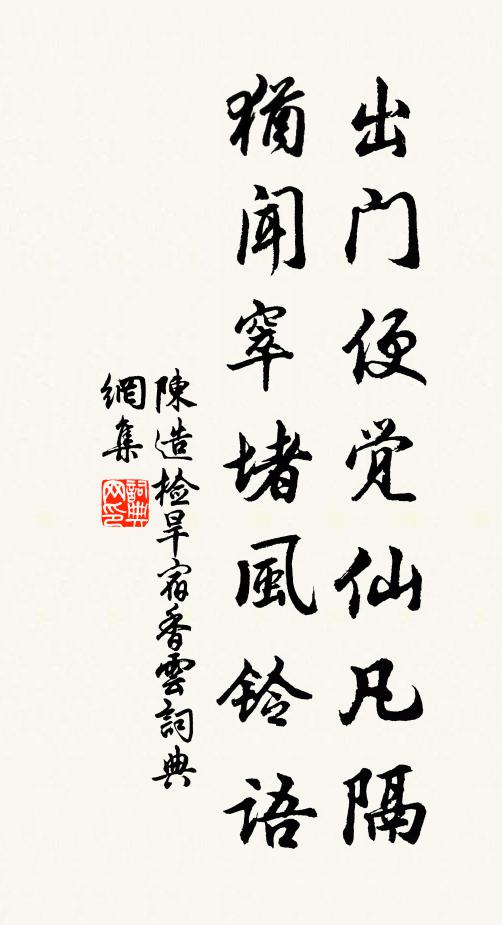 出门便觉仙凡隔
猶闻窣堵風铃语
陳造检旱宿香雲詞典
網集
詞典
网印